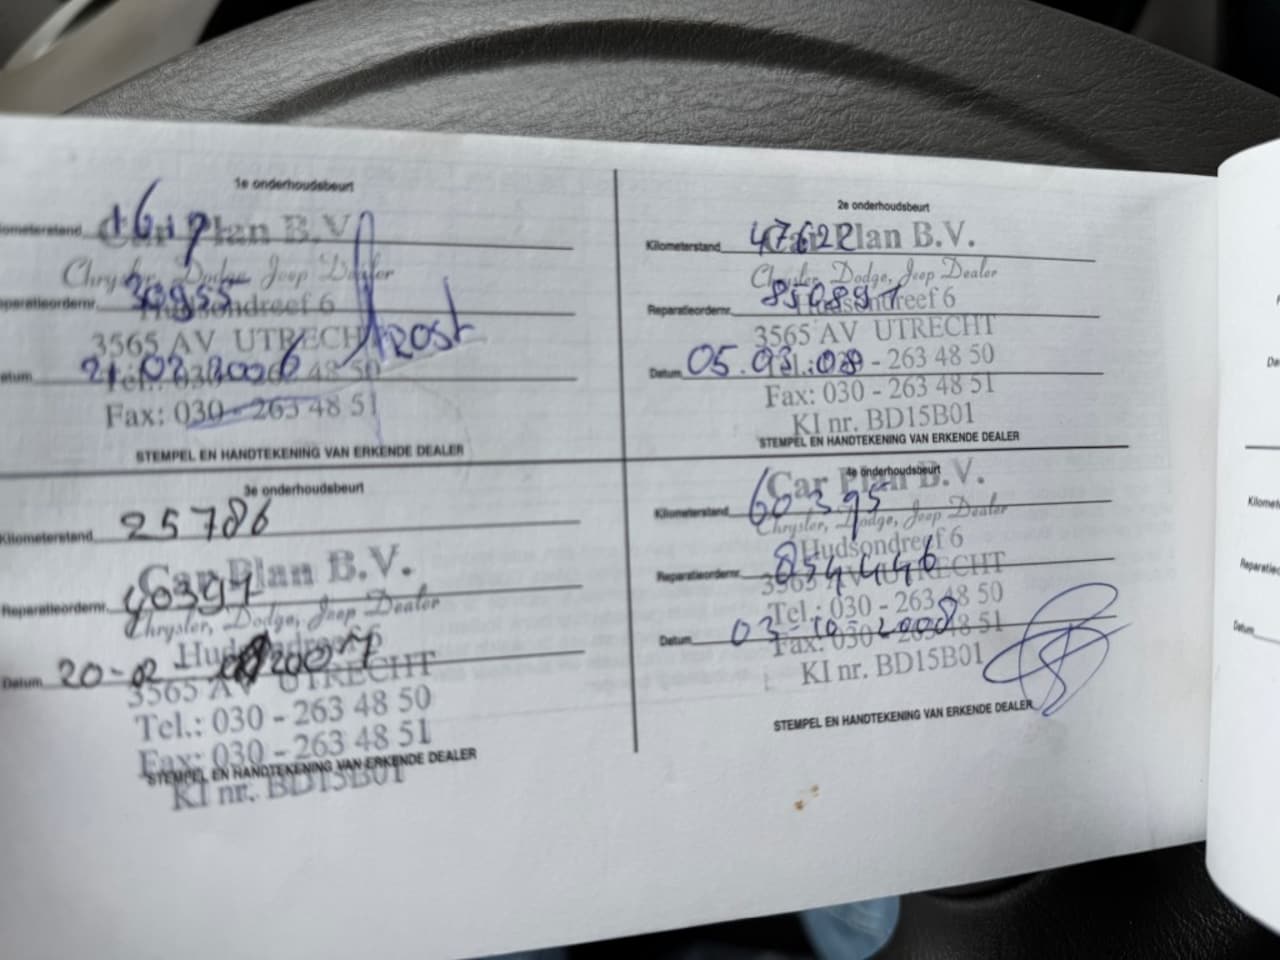 1e onderhoudsbeurt
Car Plan B.V.
Chrysler, Dodge, Jeep Dealer
30955
Hudsondreef 6
3565 AV UTRECHT
21.02.2006
Tel.: 030 - 263 48 50
Fax: 030 - 263 48 51
STEMPEL EN HANDTEKENING VAN ERKENDE DEALER
2e onderhoudsbeurt
Kilometerstand 47622
Car Plan B.V.
Chrysler, Dodge, Jeep Dealer
Reparatieordernr.
Hudsondreef 6
3565 AV UTRECHT
Datum 05.03.08
Tel.: 030 - 263 48 50
Fax: 030 - 263 48 51
KI nr. BD15B01
STEMPEL EN HANDTEKENING VAN ERKENDE DEALER
3e onderhoudsbeurt
Kilometerstand 25786
Car Plan B.V.
Reparatieordernr. 40397
Chrysler, Dodge, Jeep Dealer
Hudsondreef 6
Datum 20-02 2007
3565 AV UTRECHT
Tel.: 030 - 263 48 50
Fax: 030 - 263 48 51
STEMPEL EN HANDTEKENING VAN ERKENDE DEALER
KI nr. BD15B01
4e onderhoudsbeurt
Car Plan B.V.
Kilometerstand 60395
Chrysler, Dodge, Jeep Dealer
Hudsondreef 6
Reparatieordernr. 854446
3565 AV UTRECHT
Tel.: 030 - 263 48 50
Datum 03-10-2008
Fax: 030 - 263 48 51
KI nr. BD15B01
STEMPEL EN HANDTEKENING VAN ERKENDE DEALER
Datum